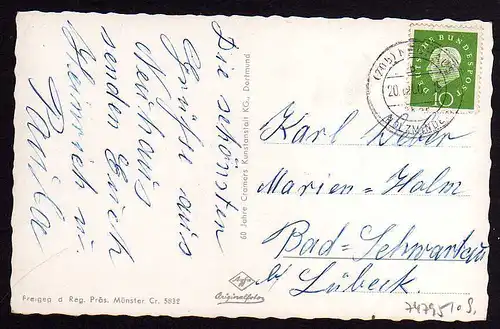 Die schönsten
Grüße aus
Neuhaus
senden Euch
Heinrich u.
Paula
60 Jahre Cramers Kunstanstalt KG., Dortmund
Freigeg d Reg. Präs. Münster Cr. 5832
Agfa
Originalfoto
DEUTSCHE BUNDESPOST
10
(20b)
20.
HOLZMINDEN
Karl
Marien-Holm
Bad-Schwartau
b/ Lübeck.
74795108.